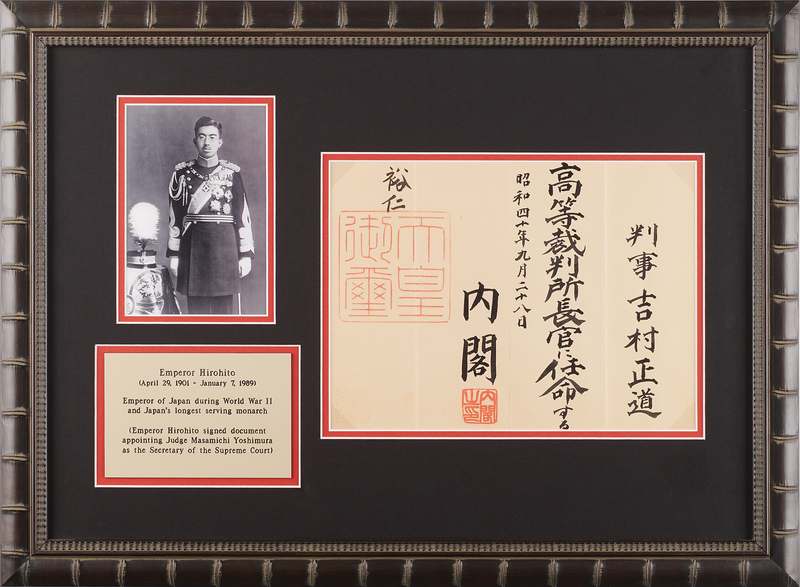 Emperor Hirohito
(April 29, 1901 - January 7, 1989)
Emperor of Japan during World War II
and Japan's longest serving monarch
(Emperor Hirohito signed document
appointing Judge Masamichi Yoshimura
as the Secretary of the Supreme Court)
判事吉村正道
高等裁判所長官に任命する
昭和四十年九月二十八日
内閣
内閣
之印
裕仁
天皇
御璽